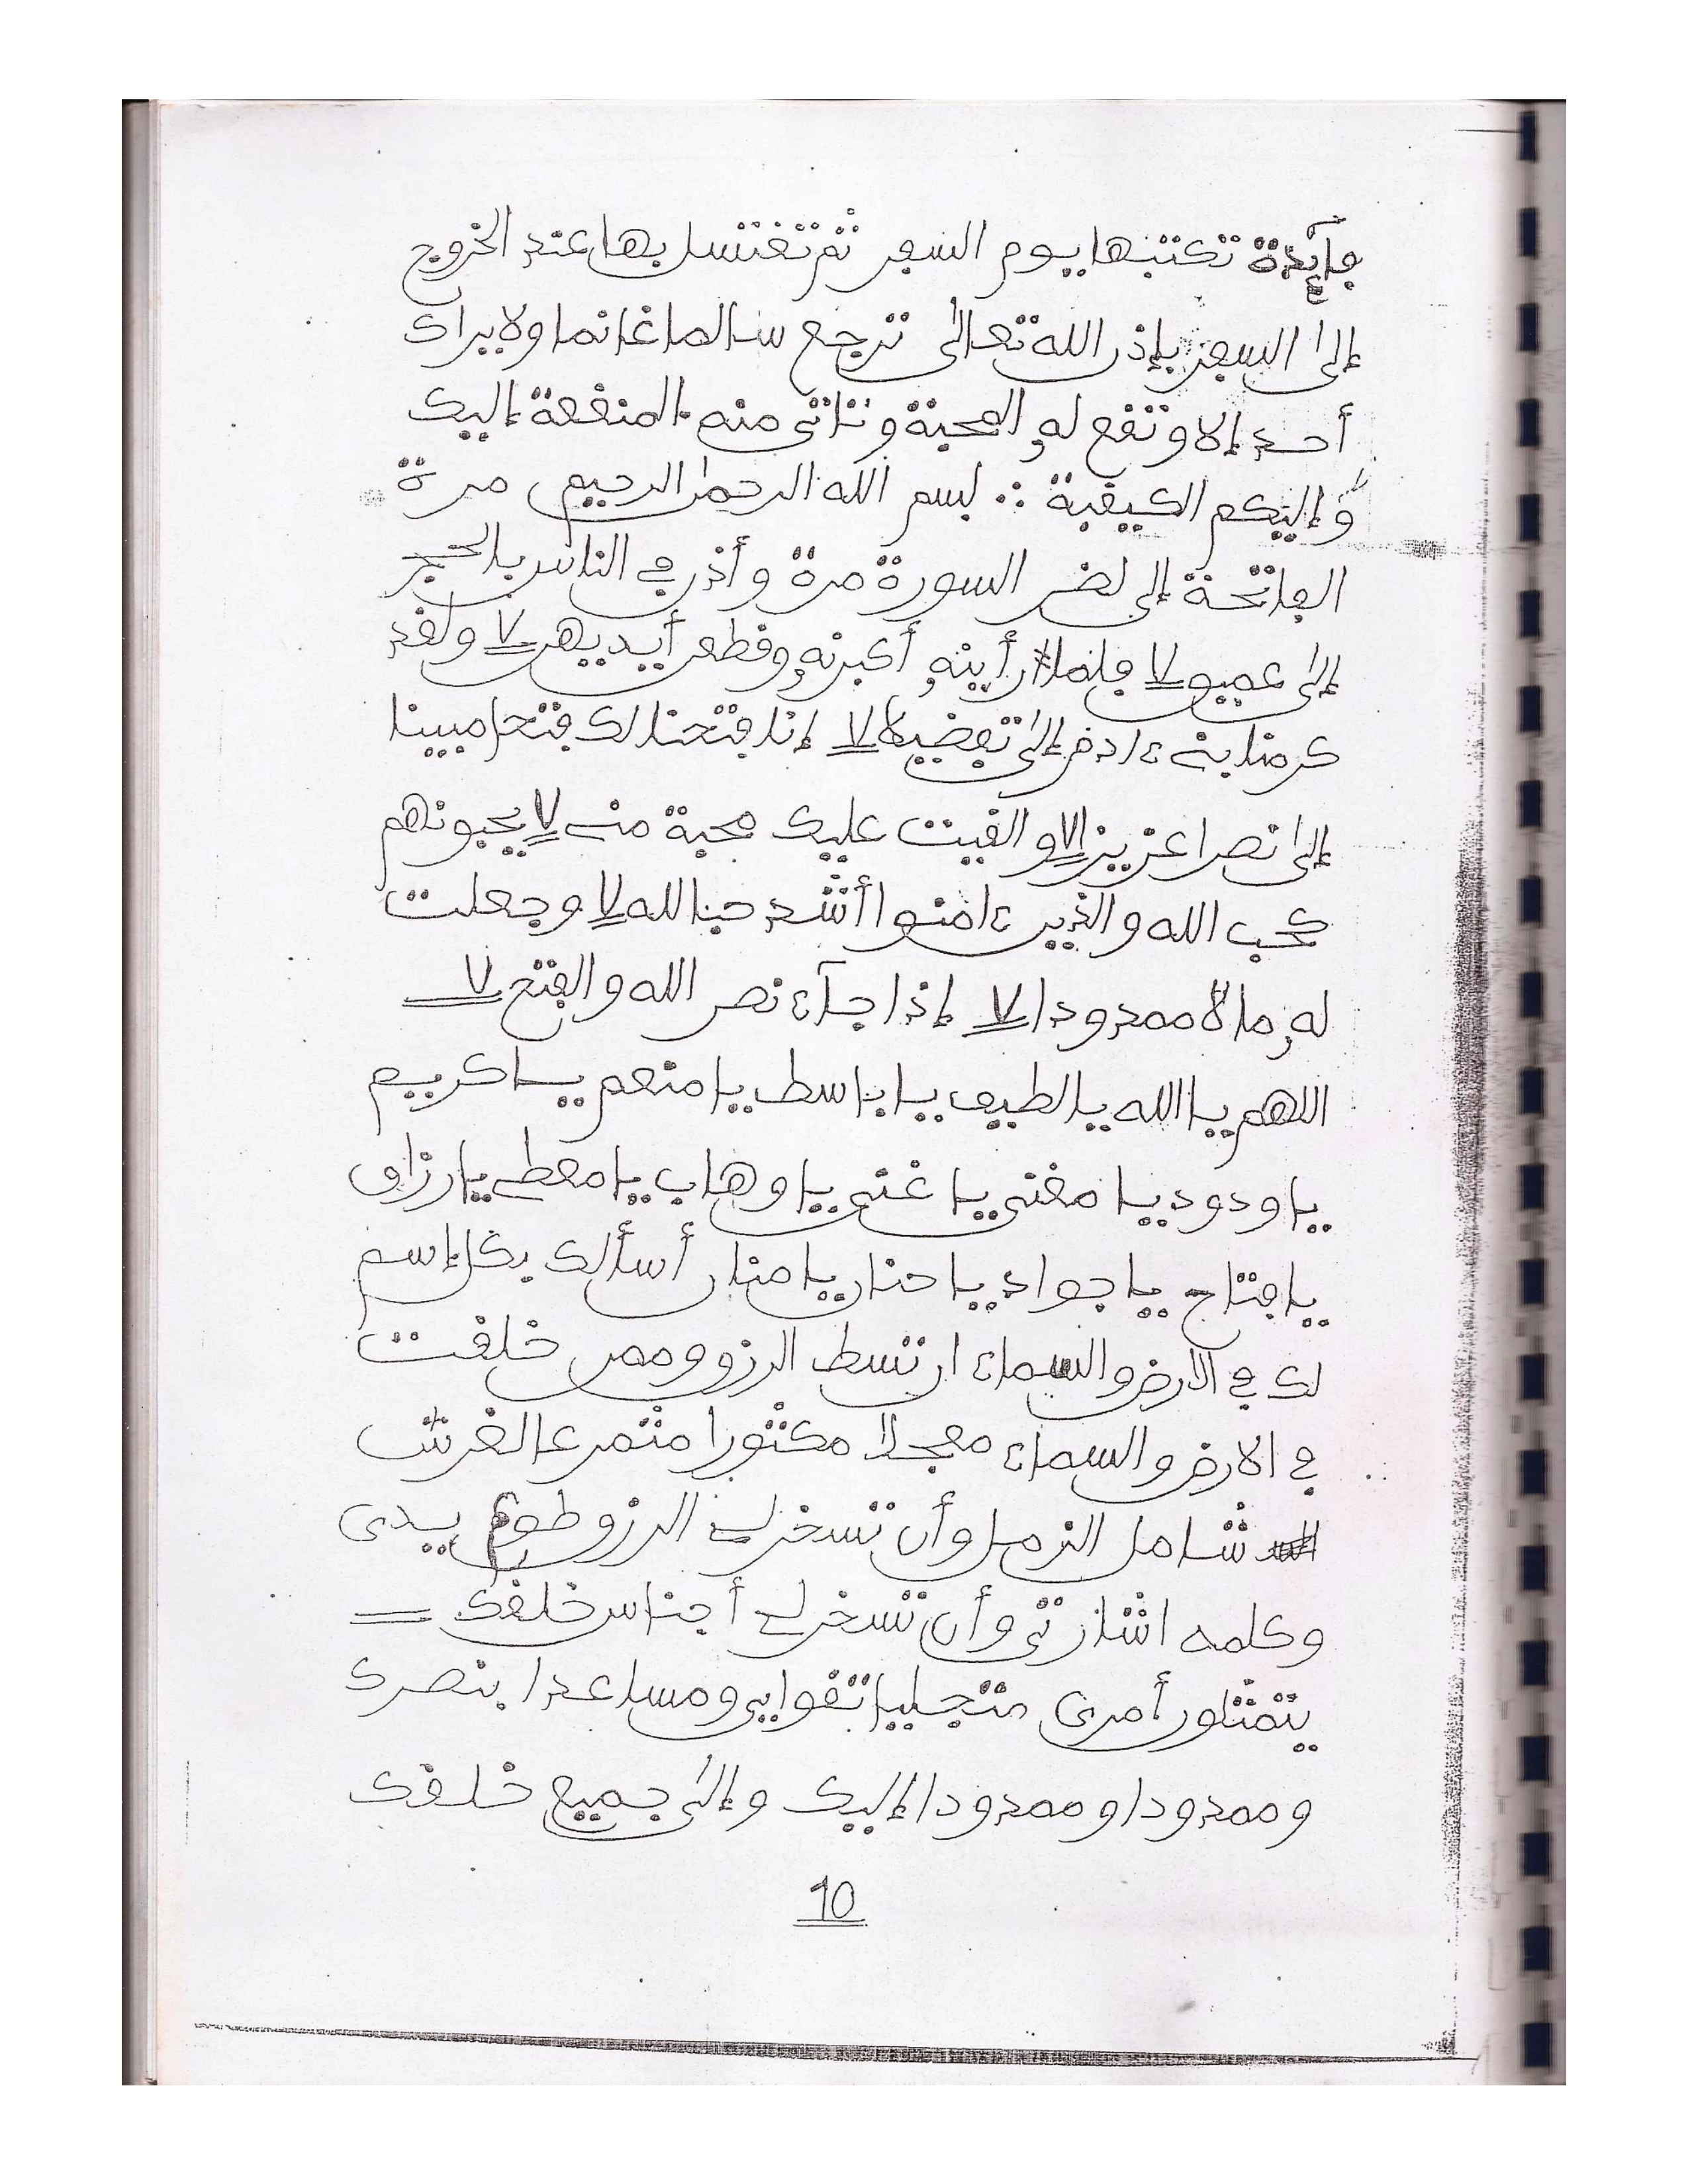 فآئدة تكتبها يوم السفر ثم تغتسل بها عند الخروج
إلى السفر بإذن الله تعالى ترجع سالما غانما ولا يراك
أحد إلا وتقع له المحبة وتاتى منه المنفعة إليك
وإليكم الكيفية ∴ بسم الله الرحمن الرحيم مرة
الفاتحة إلى لخر السورة مرة وأذن في الناس بالحج
إلى عميق لا فلما رأينه أكبرنه وقطعن أيديهن لا ولقد
كرمنا بنى ءادم إلى تفضيلا لا إنا فتحنا لك فتحا مبينا
إلى نصرا عزيزا لا والقيت عليك محبة منى لا يحبونهم
كحب الله والذين ءامنوا أشد حبا لله لا وجعلت
له مالا ممدودا لا إذا جآء نصر الله والفتح لا
اللهم يا الله يا لطيف يا باسط يا منعم يا كريم
يا ودود يا مغنى يا غنى يا وهاب يا معطى يا رزاق
يا فتاح يا جواد يا حنان يا منان أسألك بكل إسم
لك في الارض والسماء ان تسط الرزق وممن خلقت
في الارض والسماء معجلا مكثورا منثمر عا لغرش
شامل الزمل وأن تسخرلى الرزق طوع يدى
وكلمه اشارتى وأن تسخرلى أجناس خلقك
يتمثلون أمرى متجليا تقوايى ومساعدا بنصرك
وممدودا وممدودا إليك وإلى جميع خلقك
10